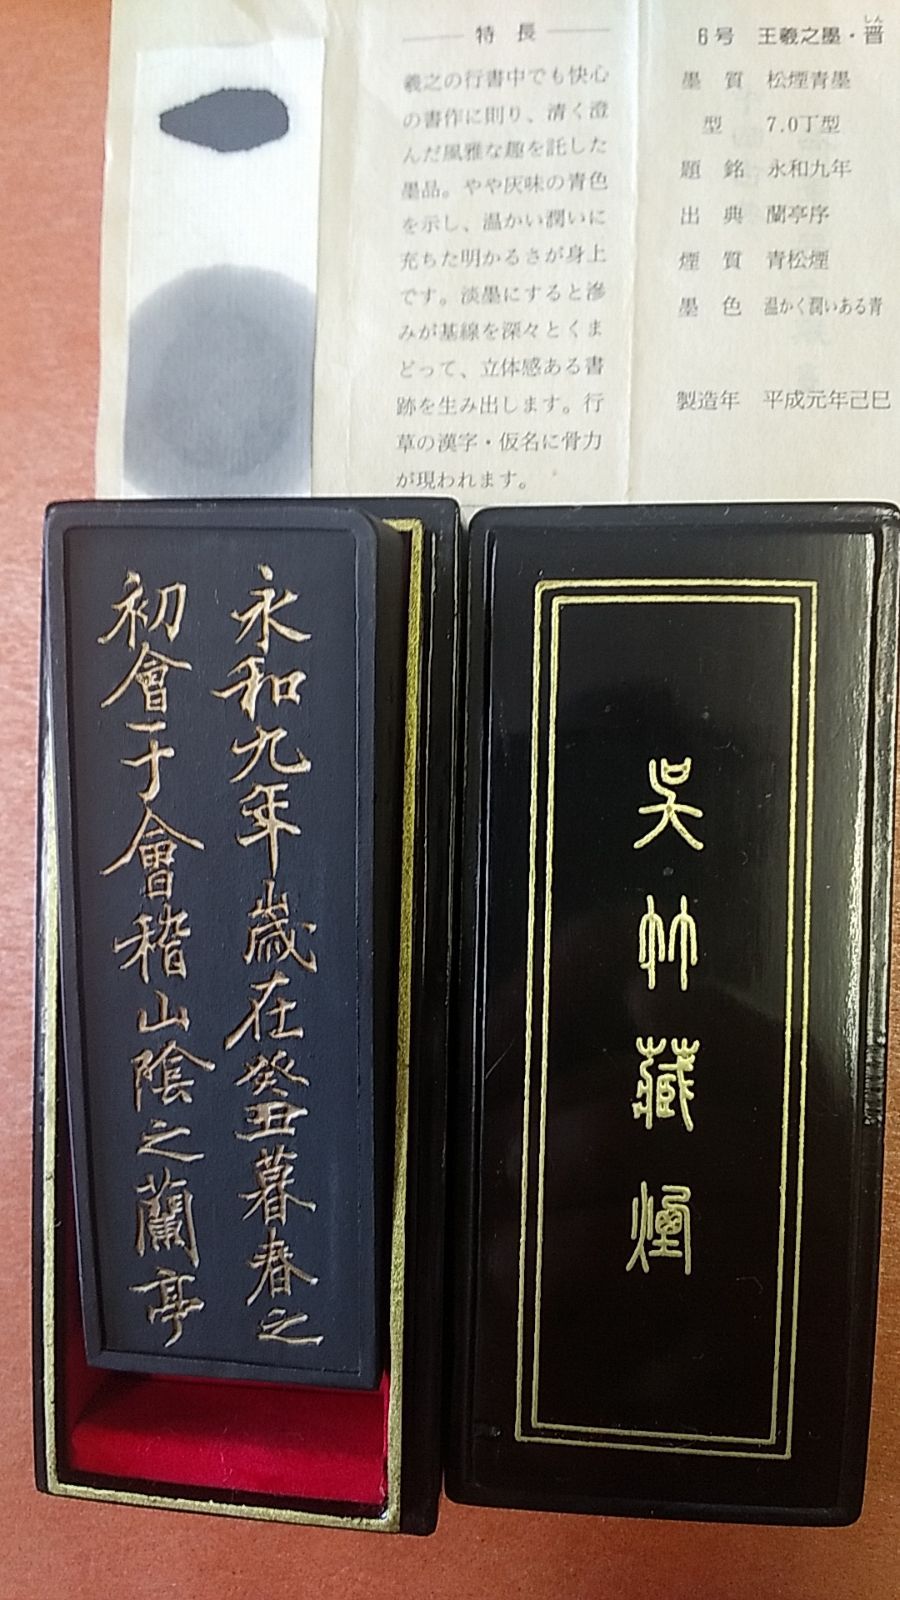 6号 王羲之墨・晋
しん
墨質 松煙青墨
型 7.0丁型
題銘 永和九年
出典 蘭亭序
煙質 青松煙
墨色 温かく潤いある青
製造年 平成元年己巳
特長
羲之の行書中でも快心
の書作に則り、清く澄
んだ風雅な趣を託した
墨品。やや灰味の青色
を示し、温かい潤いに
充ちた明かるさが身上
です。淡墨にすると滲
みが基線を深々とくま
どって、立体感ある書
跡を生み出します。行
草の漢字・仮名に骨力
が現われます。
永和九年歳在癸丑暮春之
初會于會稽山陰之蘭亭
呉竹藏煙